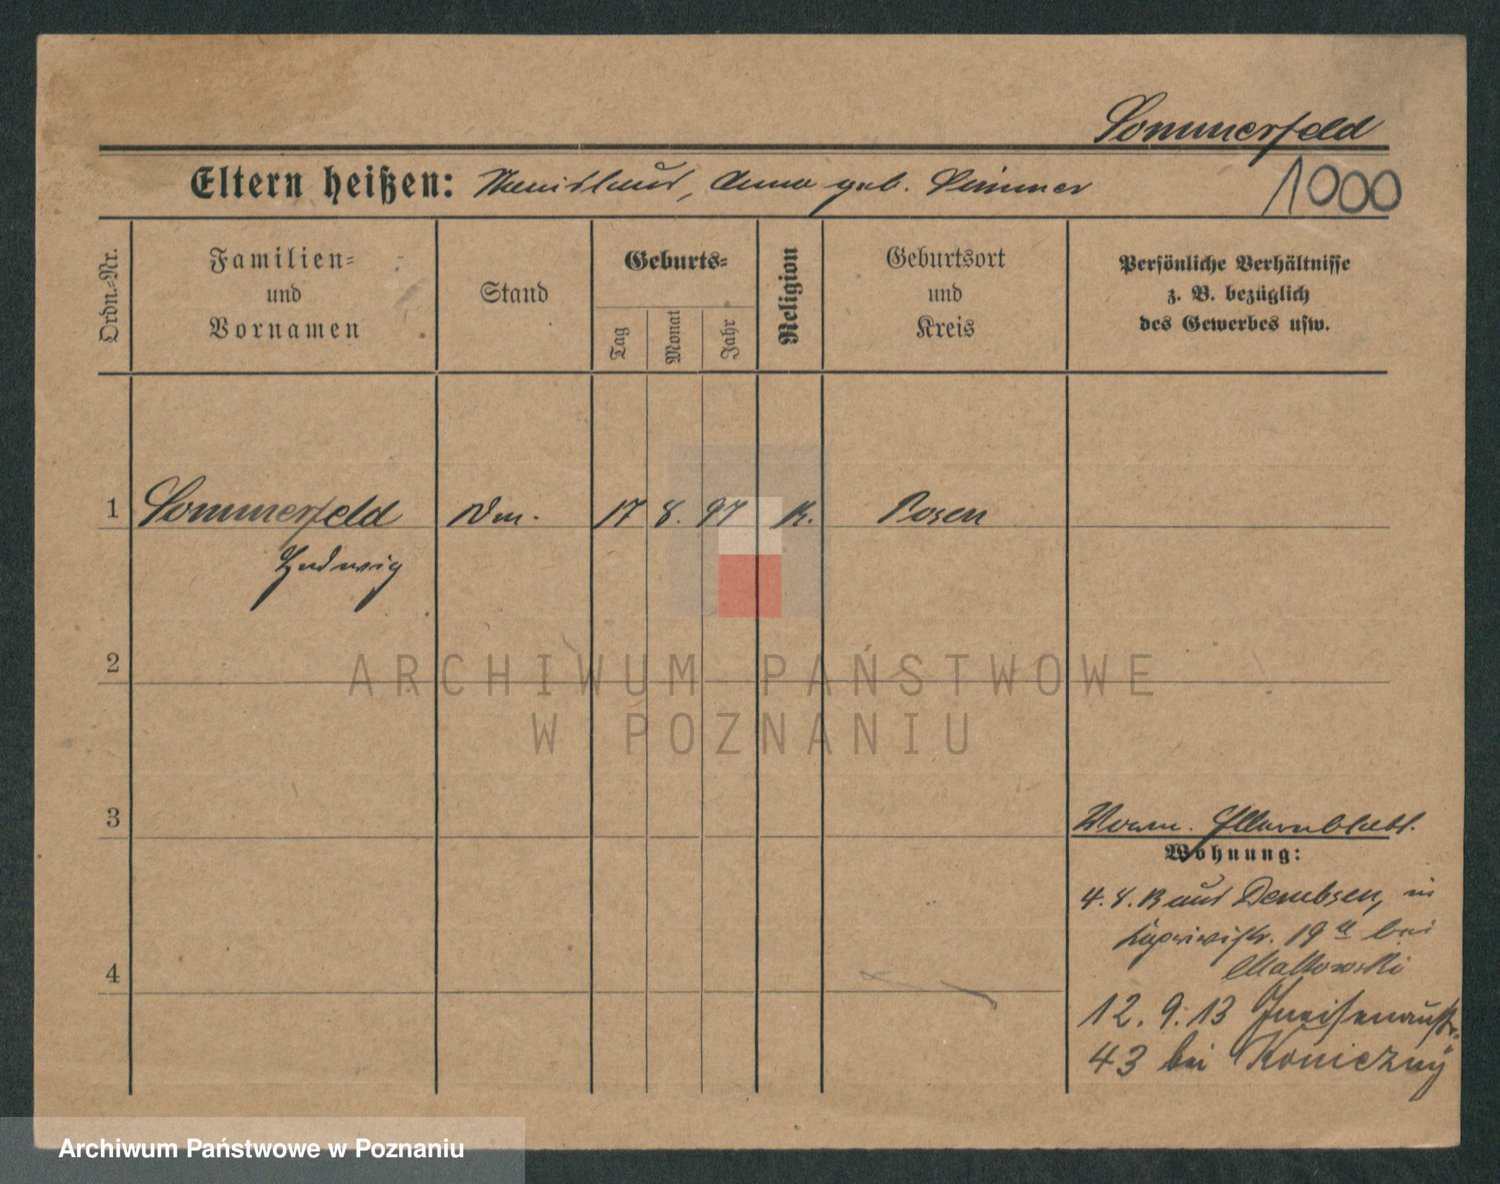 Sommerfeld
Eltern heißen: Stanislaus, Anna geb. Simmer
1000
Ordn.=Nr.
Familien=
und
Vornamen
Stand
Geburts=
Tag
Monat
Jahr
Religion
Geburtsort
und
Kreis
Persönliche Verhältnisse
z. B. bezüglich
des Gewerbes usw.
1 Sommerfeld 17 8. 97 K. Posen
Ludwig
2
3
4
Vorm.
Wohnung:
4. 8. 13 aus Dembsen, in
19 a bei
Malkowski
12. 9. 13 Gneisenaustr.
43 bei Koniczny
ARCHIWUM PAŃSTWOWE
W POZNANIU
Archiwum Państwowe w Poznaniu